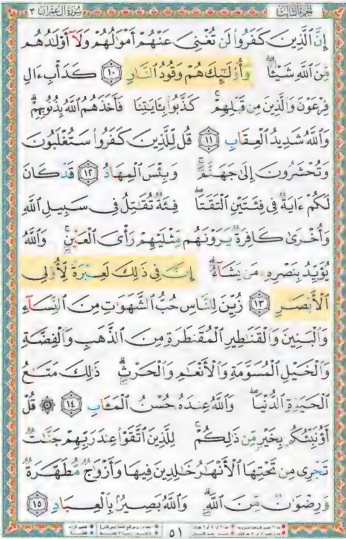 سُورَةُ آلِ عِمْرَانَ ٣
إِنَّ ٱلَّذِينَ كَفَرُوا۟ لَن تُغْنِىَ عَنْهُمْ أَمْوَٰلُهُمْ وَلَآ أَوْلَٰدُهُم
مِّنَ ٱللَّهِ شَيْـًٔا ۖ وَأُو۟لَٰٓئِكَ هُمْ وَقُودُ ٱلنَّارِ ١٠ كَدَأْبِ ءَالِ
فِرْعَوْنَ وَٱلَّذِينَ مِن قَبْلِهِمْ ۚ كَذَّبُوا۟ بِـَٔايَٰتِنَا فَأَخَذَهُمُ ٱللَّهُ بِذُنُوبِهِمْ ۗ
وَٱللَّهُ شَدِيدُ ٱلْعِقَابِ ١١ قُل لِّلَّذِينَ كَفَرُوا۟ سَتُغْلَبُونَ
وَتُحْشَرُونَ إِلَىٰ جَهَنَّمَ ۚ وَبِئْسَ ٱلْمِهَادُ ١٢ قَدْ كَانَ
لَكُمْ ءَايَةٌ فِى فِئَتَيْنِ ٱلْتَقَتَا ۖ فِئَةٌ تُقَٰتِلُ فِى سَبِيلِ ٱللَّهِ
وَأُخْرَىٰ كَافِرَةٌ يَرَوْنَهُم مِّثْلَيْهِمْ رَأْىَ ٱلْعَيْنِ ۚ وَٱللَّهُ
يُؤَيِّدُ بِنَصْرِهِۦ مَن يَشَآءُ ۗ إِنَّ فِى ذَٰلِكَ لَعِبْرَةً لِّأُو۟لِى
ٱلْأَبْصَٰرِ ١٣ زُيِّنَ لِلنَّاسِ حُبُّ ٱلشَّهَوَٰتِ مِنَ ٱلنِّسَآءِ
وَٱلْبَنِينَ وَٱلْقَنَٰطِيرِ ٱلْمُقَنطَرَةِ مِنَ ٱلذَّهَبِ وَٱلْفِضَّةِ
وَٱلْخَيْلِ ٱلْمُسَوَّمَةِ وَٱلْأَنْعَٰمِ وَٱلْحَرْثِ ۗ ذَٰلِكَ مَتَٰعُ
ٱلْحَيَوٰةِ ٱلدُّنْيَا ۖ وَٱللَّهُ عِندَهُۥ حُسْنُ ٱلْمَـَٔابِ ١٤ ۞ قُلْ
أَؤُنَبِّئُكُم بِخَيْرٍ مِّن ذَٰلِكُمْ ۚ لِلَّذِينَ ٱتَّقَوْا۟ عِندَ رَبِّهِمْ جَنَّٰتٌ
تَجْرِى مِن تَحْتِهَا ٱلْأَنْهَٰرُ خَٰلِدِينَ فِيهَا وَأَزْوَٰجٌ مُّطَهَّرَةٌ
وَرِضْوَٰنٌ مِّنَ ٱللَّهِ ۗ وَٱللَّهُ بَصِيرٌۢ بِٱلْعِبَادِ ١٥
٥١